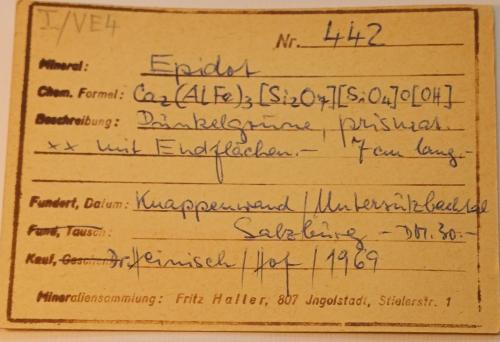 I/VE4
Nr. 442
Mineral: Epidot
Chem. Formel: Ca2(AlFe)3[Si2O7][SiO4]O[OH]
Beschreibung: Dunkelgrüne, prismat.
xx mit Endflächen.- 7 cm lang.-
Fundort, Datum: Knappenwand/Untersulzbachtal
Fund, Tausch: Salzburg - DM. 30.-
Kauf, Geschenk Dr. Heinisch/Hof/1969
Mineraliensammlung: Fritz Haller, 807 Jngolstadt, Stielerstr. 1